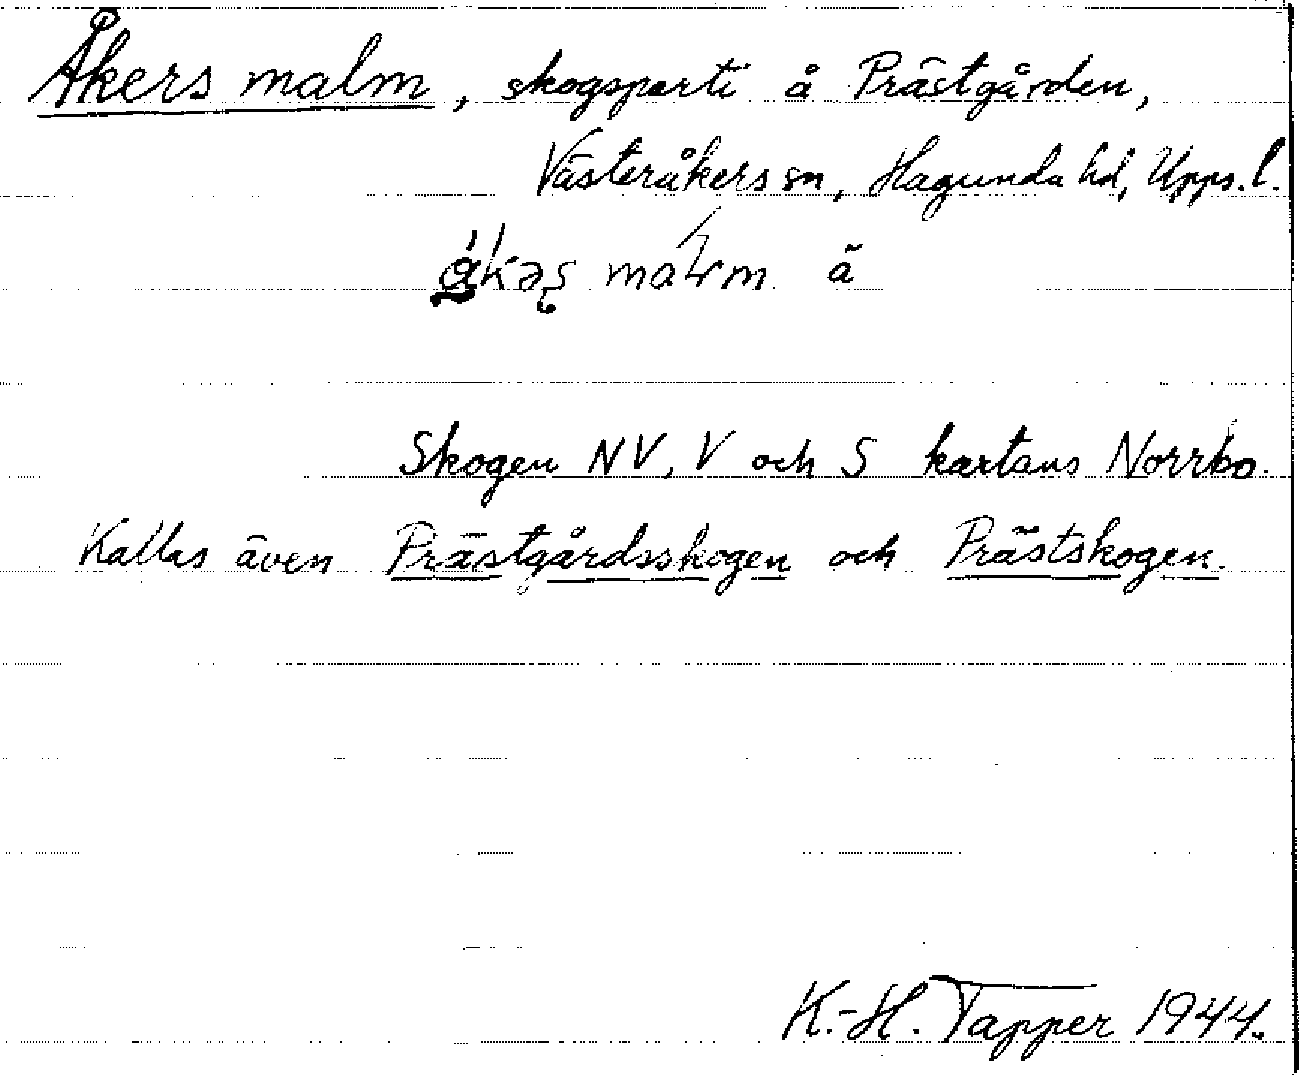 Åkers malm, skogsparti å Prästgården,
Västeråkers sn, Hagunda hd, Upps. l.
malm ä
Skogen NV, V och S kartans Norrbo.
Kallas även Prästgårdsskogen och Prästskogen.
K.-H. Tapper 1944.